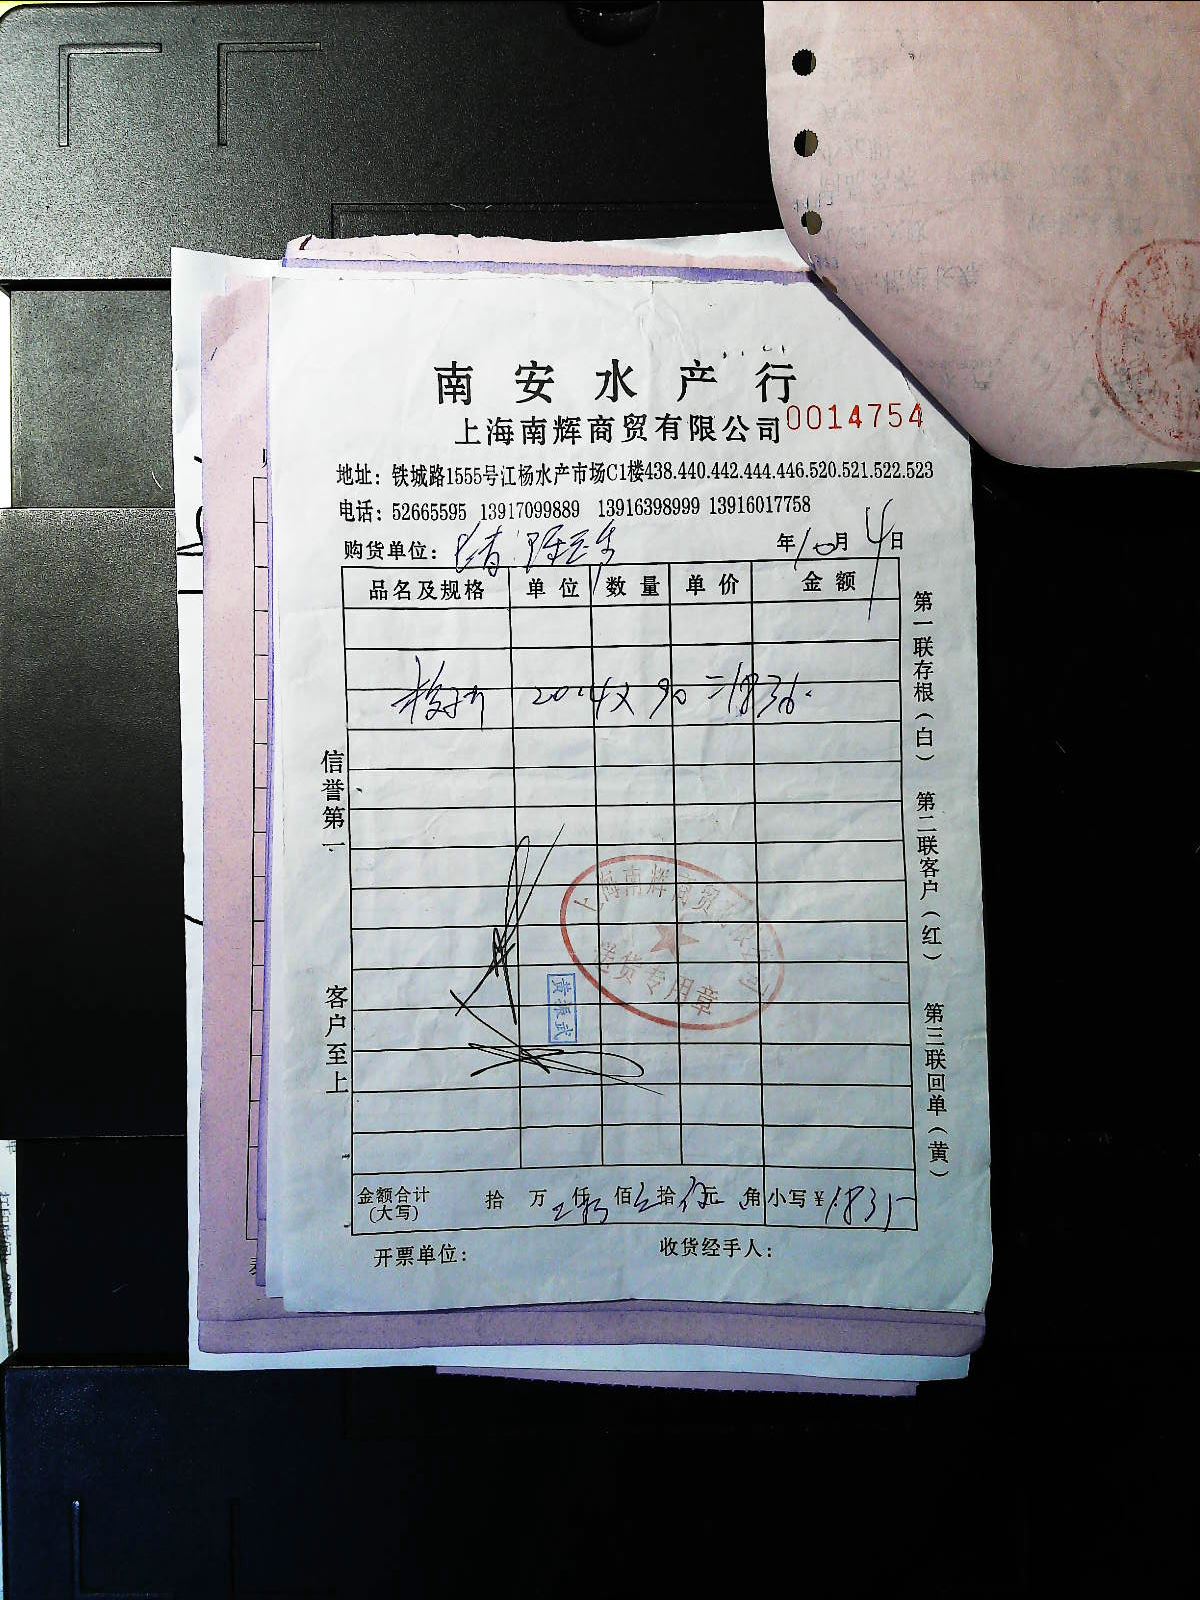 南安水产行
上海南辉商贸有限公司 0014754
地址：铁城路1555号江杨水产市场C1楼438.440.442.444.446.520.521.522.523
电话：52665595 13917099889 13916398999 13916017758
购货单位： 年10月4日
品名及规格 单位 数量 单价 金额
20.4 x 90 = 1836.
信誉第一
客户至上
第一联存根（白） 第二联客户（红） 第三联回单（黄）
上海南辉商贸有限公司
送货专用章
金额合计(大写) 拾 万 仟 佰 拾 元 角 小写￥1835
开票单位： 收货经手人：